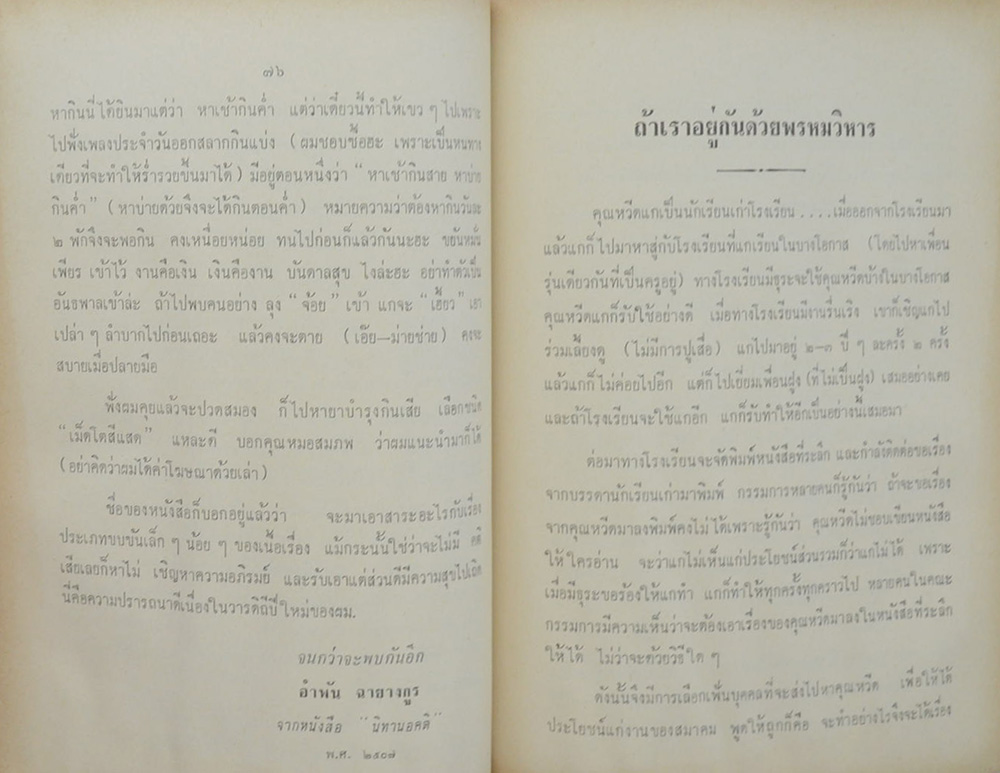 ๗๖
หากินนี่ได้ยินมาแต่ว่า หาเช้ากินค่ำ แต่ว่าเดี๋ยวนี้ทำให้เขว ๆ ไปเพราะ
ไปฟังเพลงประจำวันออกสลากกินแบ่ง (ผมชอบซื้อฮะ เพราะเป็นหนทาง
เดียวที่จะทำให้ร่ำรวยขึ้นมาได้) มีอยู่ตอนหนึ่งว่า “หาเช้ากินสาย หาบ่าย
กินค่ำ” (หาบ่ายด้วยจึงจะได้กินตอนค่ำ) หมายความว่าต้องหากินวันละ
๒ พักจึงจะพอกิน คงเหนื่อยหน่อย ทนไปก่อนก็แล้วกันนะฮะ ขยันหมั่น
เพียร เข้าไว้ งานคือเงิน เงินคืองาน บันดาลสุข ไงล่ะฮะ อย่าทำตัวเป็น
อันธพาลเข้าล่ะ ถ้าไปพบคนอย่าง ลุง “จ้อย” เข้า แกจะ “เฮี้ยว” เอา
เปล่า ๆ ลำบากไปก่อนเถอะ แล้วคงจะตาย (เอ๊ย—ม่ายช่าย) คงจะ
สบายเมื่อปลายมือ
ฟังผมคุยแล้วจะปวดสมอง ก็ไปหายาบำรุงกินเสีย เลือกชนิด
“เม็ดโตสีแสด” แหละดี บอกคุณหมอสมภพ ว่าผมแนะนำมาก็ได้
(อย่าคิดว่าผมได้ค่าโฆษณาด้วยเล่า)
ชื่อของหนังสือก็บอกอยู่แล้วว่า จะมาเอาสาระอะไรกับเรื่อง
ประเภทขบขันเล็ก ๆ น้อย ๆ ของเนื้อเรื่อง แม้กระนั้นใช่ว่าจะไม่มี คติ
เสียเลยก็หาไม่ เชิญหาความอภิรมย์ และรับเอาแต่ส่วนดีมีความสุขไปเถิด
นี่คือความปรารถนาดีเนื่องในวารดิถีปีใหม่ของผม.
จนกว่าจะพบกันอีก
อำพัน ฉายางกูร
จากหนังสือ “นิทานอคติ”
พ.ศ. ๒๕๐๗
ถ้าเราอยู่กันด้วยพรหมวิหาร
คุณหวีดแกเป็นนักเรียนเก่าโรงเรียน ....เมื่อออกจากโรงเรียนมา
แล้วแกก็ไปมาหาสู่กับโรงเรียนที่แกเรียนในบางโอกาส (โดยไปหาเพื่อน
รุ่นเดียวกันที่เป็นครูอยู่) ทางโรงเรียนมีธุระจะใช้คุณหวีดบ้างในบางโอกาส
คุณหวีดแกก็รับใช้อย่างดี เมื่อทางโรงเรียนมีงานรื่นเริง เขาก็เชิญแกไป
ร่วมเลี้ยงดู (ไม่มีการปูเสื่อ) แกไปมาอยู่ ๒–๓ ปี ๆ ละครั้ง ๒ ครั้ง
แล้วแกก็ไม่ค่อยไปอีก แต่ก็ไปเยี่ยมเพื่อนฝูง (ที่ไม่เป็นฝูง) เสมออย่างเคย
และถ้าโรงเรียนจะใช้แกอีก แกก็รับทำให้อีกเป็นอย่างนี้เสมอมา
ต่อมาทางโรงเรียนจะจัดพิมพ์หนังสือที่ระลึก และกำลังติดต่อขอเรื่อง
จากบรรดานักเรียนเก่ามาพิมพ์ กรรมการหลายคนก็รู้กันว่า ถ้าจะขอเรื่อง
จากคุณหวีดมาลงพิมพ์คงไม่ได้เพราะรู้กันว่า คุณหวีดไม่ชอบเขียนหนังสือ
ให้ใครอ่าน จะว่าแกไม่เห็นแก่ประโยชน์ส่วนรวมก็ว่าแกไม่ได้ เพราะ
เมื่อมีธุระขอร้องให้แกทำ แกก็ทำให้ทุกครั้งทุกคราวไป หลายคนในคณะ
กรรมการมีความเห็นว่าจะต้องเอาเรื่องของคุณหวีดมาลงในหนังสือที่ระลึก
ให้ได้ ไม่ว่าจะด้วยวิธีใด ๆ
ดังนั้นจึงมีการเลือกเฟ้นบุคคลที่จะส่งไปหาคุณหวีด เพื่อให้ได้
ประโยชน์แก่งานของสมาคม พูดให้ถูกก็คือ จะทำอย่างไรจึงจะได้เรื่อง